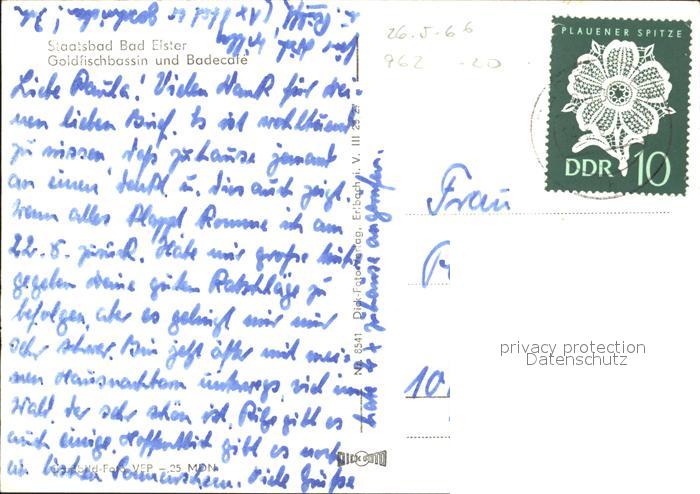 Staatsbad Bad Elster
Goldfischbassin und Badecafe
Liebe Paula! Vielen Dank für dei-
nen lieben Brief. Es ist wohltuend
zu wissen daß zuhause jemand
an einen denkt u. dies auch zeigt.
Wenn alles klappt komme ich am
22. 6. zurück. Habe mir große Mühe
gegeben deine guten Ratschläge zu
befolgen, aber es gelingt mir nur
sehr schwer. Bin jetzt öfter mit mei-
nen Hausnachbarn unterwegs, viel im
Wald, der sehr schön ist. Pilze gibt es
auch einige. Hoffentlich gibt es noch
ein bischen Sonnenschein. Viele Grüße
hatte 4 x zuhause angerufen.
Nr. 8541 Dick-Foto-Verlag, Erlbach i. V. III 25 27
VEP -.25 MDN
DICK FOTO
26.5.66
962 -20
PLAUENER SPITZE
DDR 10
Frau
10
privacy protection
Datenschutz